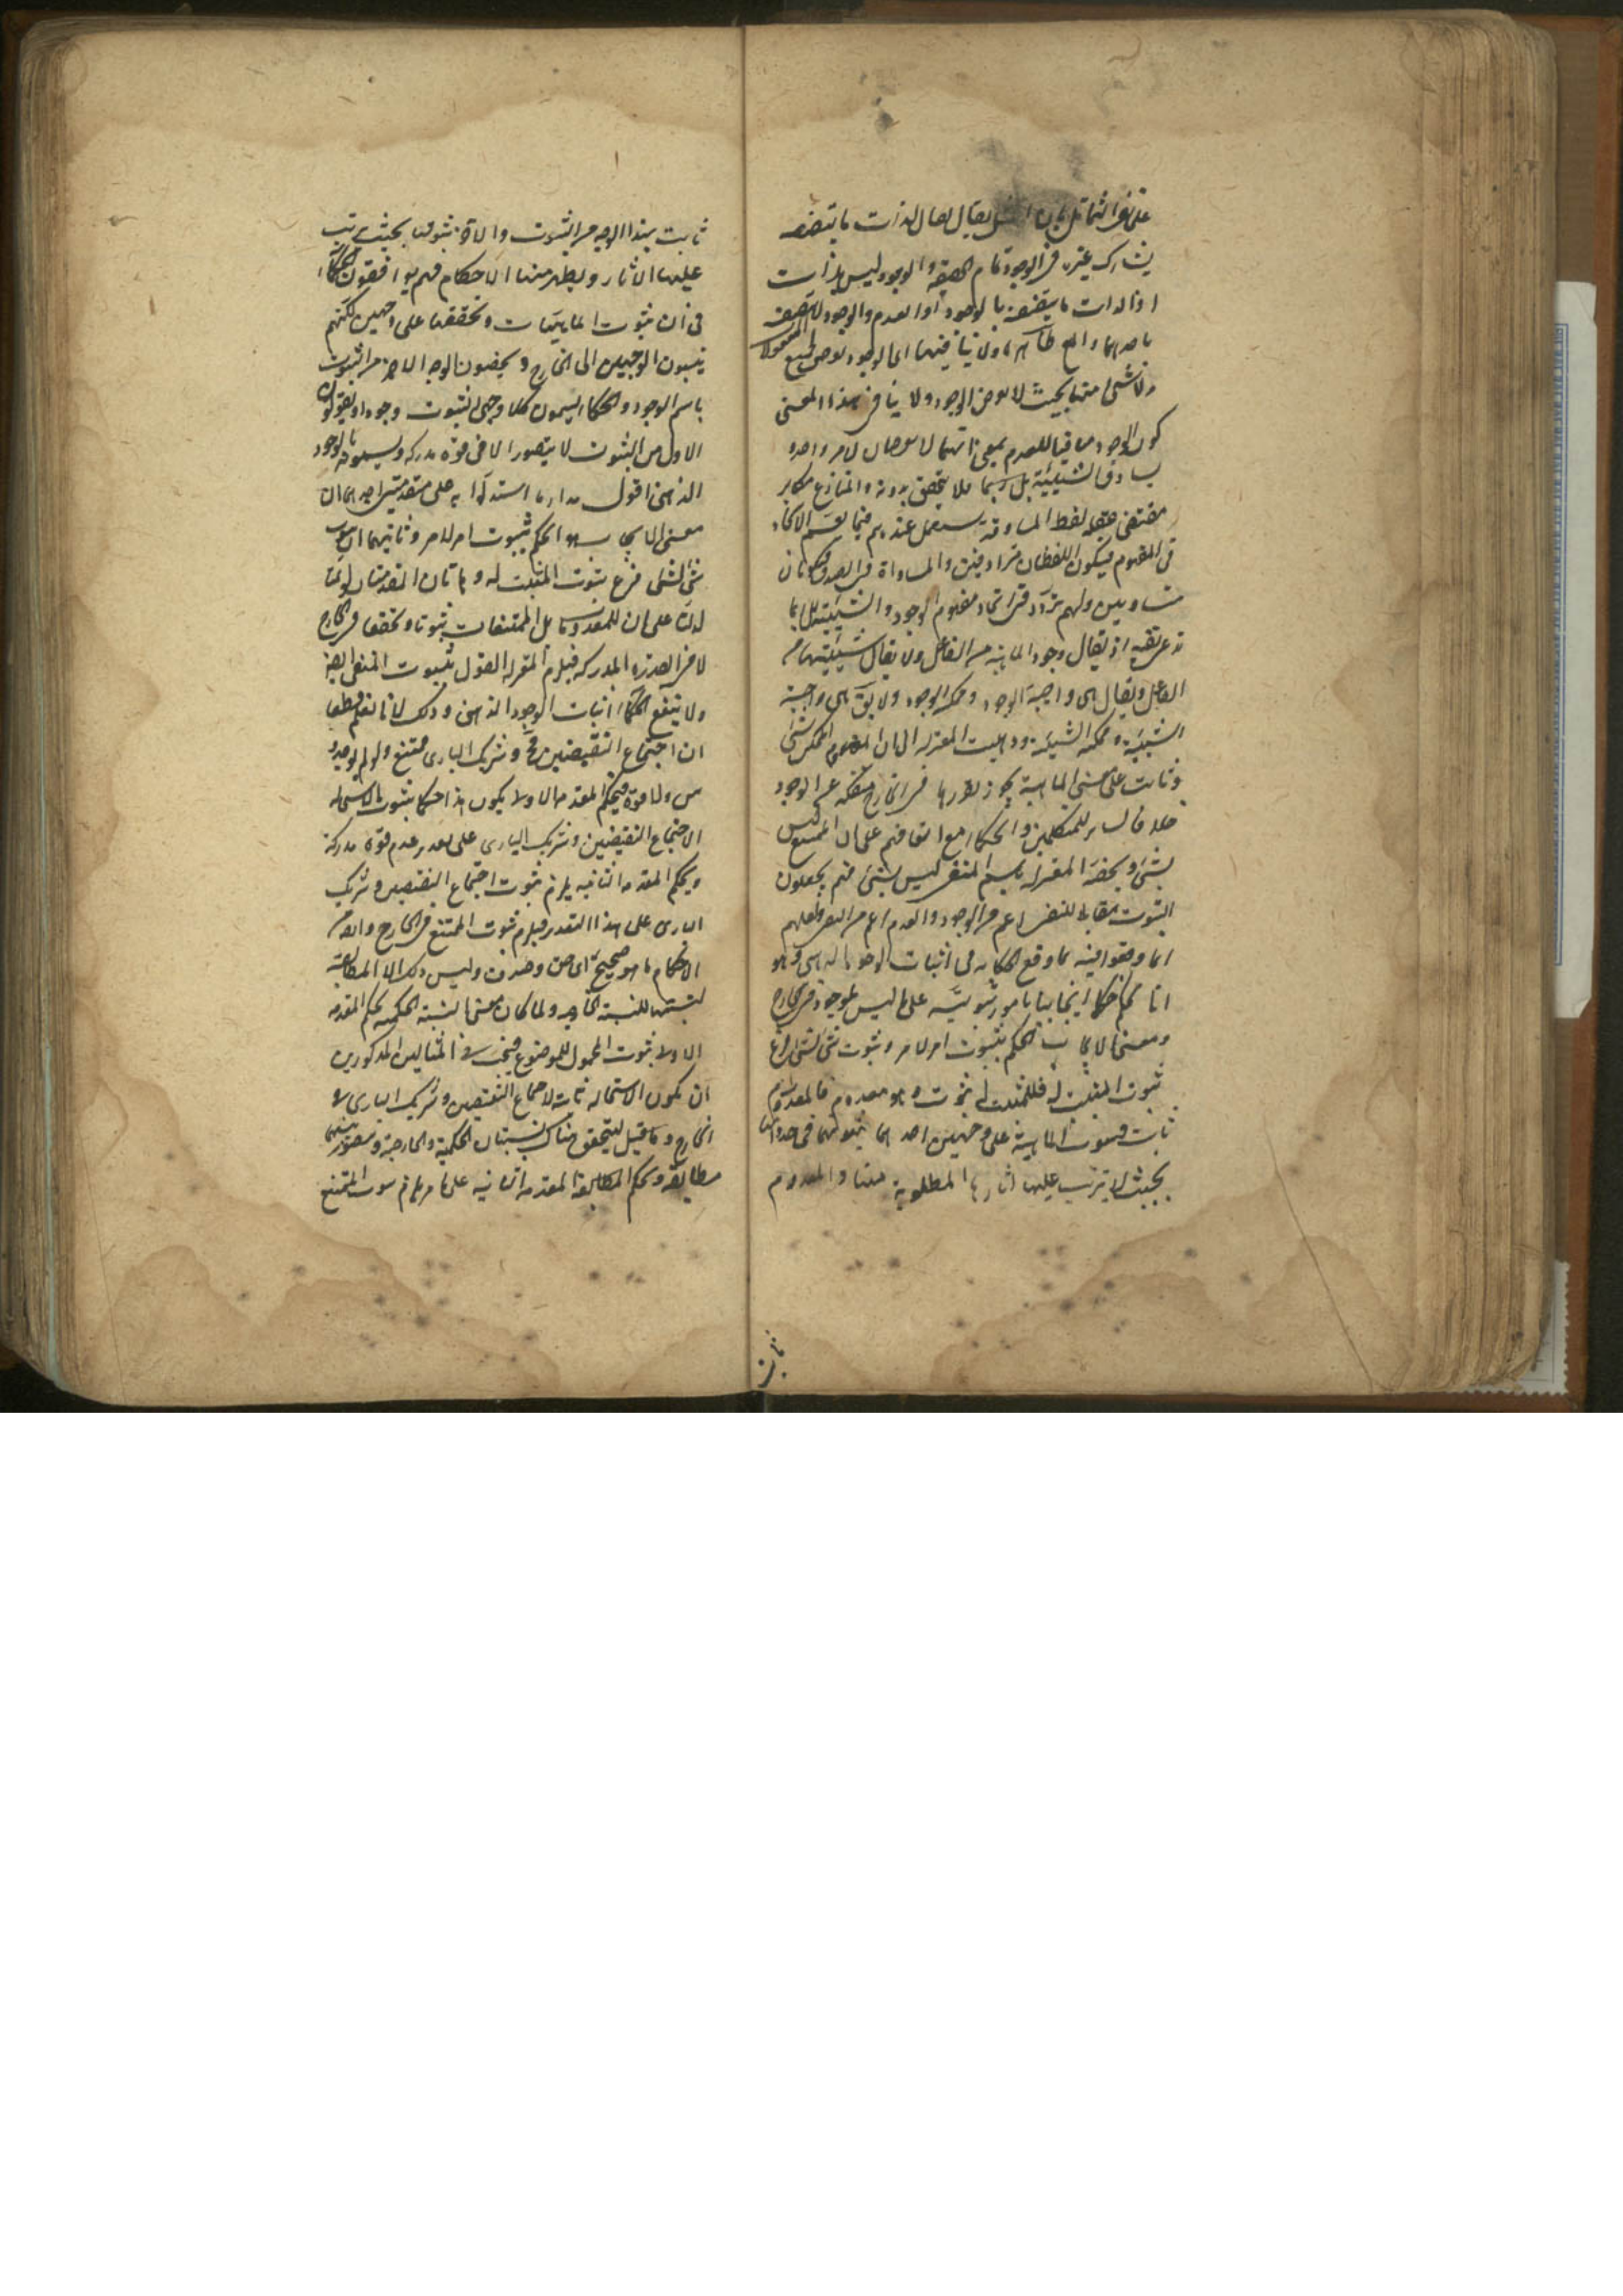 يشارك غيره في الوجود تمام الحقيقة والوجود ليس بذات
اذ الذات ما يتصف بالوجود او العدم والوجود لا يتصف
باحدهما ولا ينافيهما اي الوجود يعرض لجميع المعقولات
ولا شئ منها بحيث لا يعرض الوجود ولا ينافي هذا المعنى
كون الوجود منافيا للعدم بمعنى انهما لا يعرضان لامر واحد و
يساوق الشيئية بل ربما فلا يتحقق بدونه والمنازع مكابر
مقتضى عقله لفظ المساوقة يستعمل عندهم فيما يعم الاتحاد
في المفهوم فيكون اللفظان مترادفين والمساواة في الصدق فيكونان
متساويين ولهم تردد في اتحاد مفهوم الوجود والشيئية بل ربما
يقال وجود الماهية من الفاعل ولا يقال شيئيتها من
الفاعل ويقال هي واجبة الوجود وممكنة الوجود ولا يق هي واجبة
الشيئية وممكنة الشيئية وذهبت المعتزلة الى ان المعدوم الممكن شئ
وثابت على معنى ان الماهية يجوز تقررها في الخارج منفكة عن الوجود
خلافا لساير المتكلمين والحكماء مع اتفاقهم على ان الممتنع ليس
بشئ ويخصه المعتزلة باسم المنفي ليس بشئ فهم يجعلون
الثبوت مقابلا للنفي اعم من الوجود والعدم اعم من النفي ولعلهم
انما وقعوا فيه بما وقع الحكماء في اثبات الوجود الذهني وهو
انا نحكم حكما ايجابيا بامور ثبوتية على ما ليس بموجود في الخارج
ومعنى الايجاب الحكم بثبوت امر لامر وثبوت شئ لشئ فرع
ثبوت المثبت له فللمثبت له ثبوت وهو معدوم فالمعدوم
ثابت فثبوت الماهية على وجهين احدهما ثبوتها في حد ذاتها
بحيث لا يترتب عليها اثارها المطلوبة منها والمعدوم
ثابت
ثابت بهذا الوجه من الثبوت والاخر ثبوتها بحيث يترتب
عليها الاثار ويظهر منها الاحكام فهم يوافقون الحكماء
في ان ثبوت الماهيات وتحققها على وجهين لكنهم
ينسبون الوجهين الى الخارج ويخصون الوجه الاخر من الثبوت
باسم الوجود والحكماء يسمون كلا وجهي الثبوت وجودا ويقولون
الاول من الثبوت لا يتصور الا في قوة مدركة ويسمونه بالوجود
الذهني اقول مدار ما استدلوا به على مقدمتين احدهما ان
معنى الايجاب هو الحكم بثبوت امر لامر وثانيهما ان ثبوت
شئ لشئ فرع ثبوت المثبت له وهاتان المقدمتان لو تمتا
لدلتا على ان للمعدومات بل الممتنعات ثبوتا وتحققا في الخارج
لا في القوة المدركة فيلزم المعتزلة القول بثبوت المنفي ايضا
ولا ينفع الحكماء اثبات الوجود الذهني وذلك لانا نعلم قطعا
ان اجتماع النقيضين مح وشريك الباري ممتنع ولو لم يوجد
ذهن ولا قوة فبحكم المقدمة الاولى يكون هذا حكما بثبوت الاستحالة
لاجتماع النقيضين وشريك الباري على تقدير عدم قوة مدركة
وبحكم المقدمة الثانية يلزم ثبوت اجتماع النقيضين وشريك
الباري على هذا التقدير فيلزم ثبوت الممتنع في الخارج وايضا من
الاحكام ما هو صحيح اي حق وصدق وليس ذلك الا المطابقة
لنسبتها للنسبة الخارجية ولما كان معنى النسبة الحكمية بحكم المقدمة
الاولى ثبوت المحمول للموضوع فيجب في المثالين المذكورين
ان يكون الاستحالة ثابتة لاجتماع النقيضين وشريك الباري في
الخارج وما قيل ليتحقق هناك نسبتان الحكمية والخارجية ويتصور بينهما
مطابقة وبحكم المطابقة المقدمة الثانية على ما مر يلزم ثبوت الممتنع